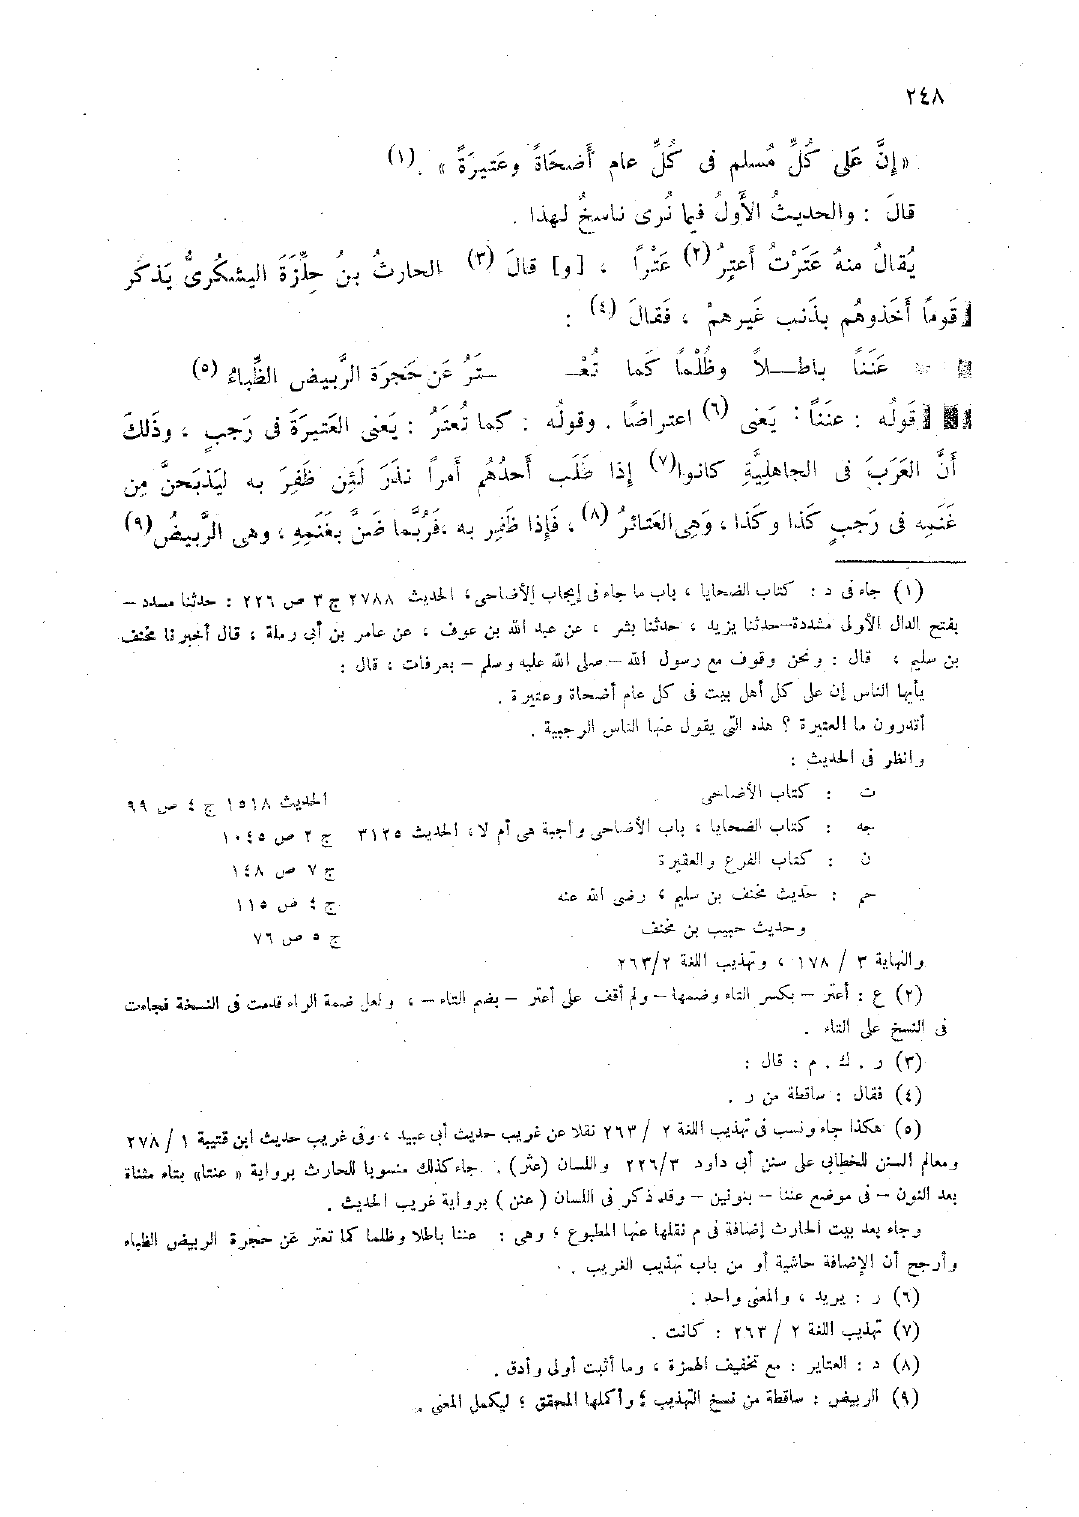 ٢٤٨
«إِنَّ عَلى كُلِّ مُسلم فى كُلِّ عام أَضحَاةً وعَتيرَةً» . (١)
قالَ : والحديثُ الأَولُ فيما نُرى ناسخٌ لهذا .
يُقالُ منهُ عَتَرْتُ أَعتِرُ (٢) عَتْراً ، [و] قالَ (٣) الحارثُ بنُ حِلِّزَةَ اليشكرىُّ يَذكر
قَوماً أَخَذوهُم بذَنب غَيرهمْ ، فَقالَ (٤) :
عَنَناً باطــلاً وظُلْمًا كَما تُعْـ ـتَرُ عَن حَجرَة الرَّبيض الظِّباءُ (٥)
قَولُه : عنَناً : يَعنى (٦) اعتراضًا . وقولُه : كما تُعتَرُ : يَعنى العَتيرَةَ فى رَجبٍ ، وذَلكَ
أَنَّ العَرَبَ فى الجاهليَّةِ كانوا (٧) إِذا طَلَب أَحدُهُم أَمراً نذَرَ لَئِن ظَفِرَ به لَيَذبَحنَّ مِن
غَنَمِه فى رَجبٍ كَذا وكَذا ، وَهِى العَتائرُ (٨) ، فَإِذا ظَفِر به ،فَرُبَّما ضَنَّ بغَنَمِهِ ، وهى الرَّبيضُ (٩)
(١) جاء فى د : كتاب الضحايا ، باب ما جاء فى إيجاب الأضاحى، الحديث ٢٧٨٨ ج ٣ ص ٢٢٦ : حدثنا مسدد –
بفتح الدال الأولى مشددة–حدثنا يزيد ، حدثنا بشر ، عن عبد الله بن عوف ، عن عامر بن أبى رملة ، قال أخبرنا مخنف
بن سليم ، قال : ونحن وقوف مع رسول الله – صلى الله عليه وسلم – بعرفات ، قال :
يأيها الناس إن على كل أهل بيت فى كل عام أضحاة وعتيرة .
أتدرون ما العتيرة ؟ هذه التى يقول عنها الناس الرجبية .
وانظر فى الحديث :
ت : كتاب الأضاحى الحديث ١٥١٨ ج ٤ ص ٩٩
جه : كتاب الضحايا ، باب الأضاحى واجبة هى أم لا، الحديث ٣١٢٥ ج ٢ ص ١٠٤٥
ن : كتاب الفرع والعقيرة ج ٧ ص ١٤٨
حم : حديث مخنف بن سليم ، رضى الله عنه ج ٤ ص ١١٥
وحديث حبيب بن مخنف ج ٥ ص ٧٦
والنهاية ٣ / ١٧٨ ، وتهذيب اللغة ٢/٢٦٣
(٢) ع : أعتر – بكسر التاء وضمها – ولم أقف على أعتر – بضم التاء – ، ولعل ضمة الراء قدمت فى النسخة فجاءت
فى النسخ على التاء .
(٣) ر . ك . م : قال :
(٤) فقال : ساقطة من ر .
(٥) هكذا جاء ونسب فى تهذيب اللغة ٢ / ٢٦٣ نقلا عن غريب حديث أبى عبيد ، وفى غريب حديث ابن قتيبة ١ / ٢٧٨
ومعالم السنن للخطابى على سنن أبى داود ٢٢٦/٣ واللسان (عتر) . جاء كذلك منسوبا للحارث برواية « عنتا» بتاء مثناة
بعد النون – فى موضع عننا – بنونين – وقد ذكر فى اللسان ( عنن ) برواية غريب الحديث .
وجاء بعد بيت الحارث إضافة فى م نقلها عنها المطبوع ، وهى : عننا باطلا وظلما كما تعتر عن حجرة الربيض الظباء
وأرجح أن الإضافة حاشية أو من باب تهذيب الغريب .
(٦) ر : يريد ، والمعنى واحد .
(٧) تهذيب اللغة ٢ / ٢٦٣ : كانت .
(٨) د : العتاير : مع تخفيف الهمزة ، وما أثبت أولى وأدق .
(٩) الربيض : ساقطة من نسخ التهذيب ؛ وأكملها المحقق ؛ ليكمل المعنى .